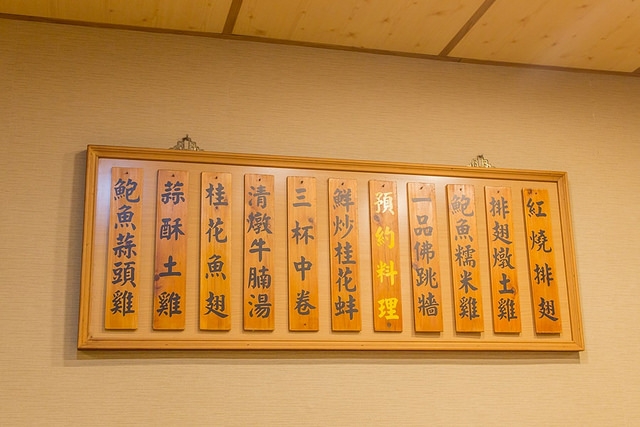 紅燒排翅
排翅燉土雞
鮑魚糯米雞
一品佛跳牆
預約料理
鮮炒桂花蚌
三杯中卷
清燉牛腩湯
桂花魚翅
蒜酥土雞
鮑魚蒜頭雞